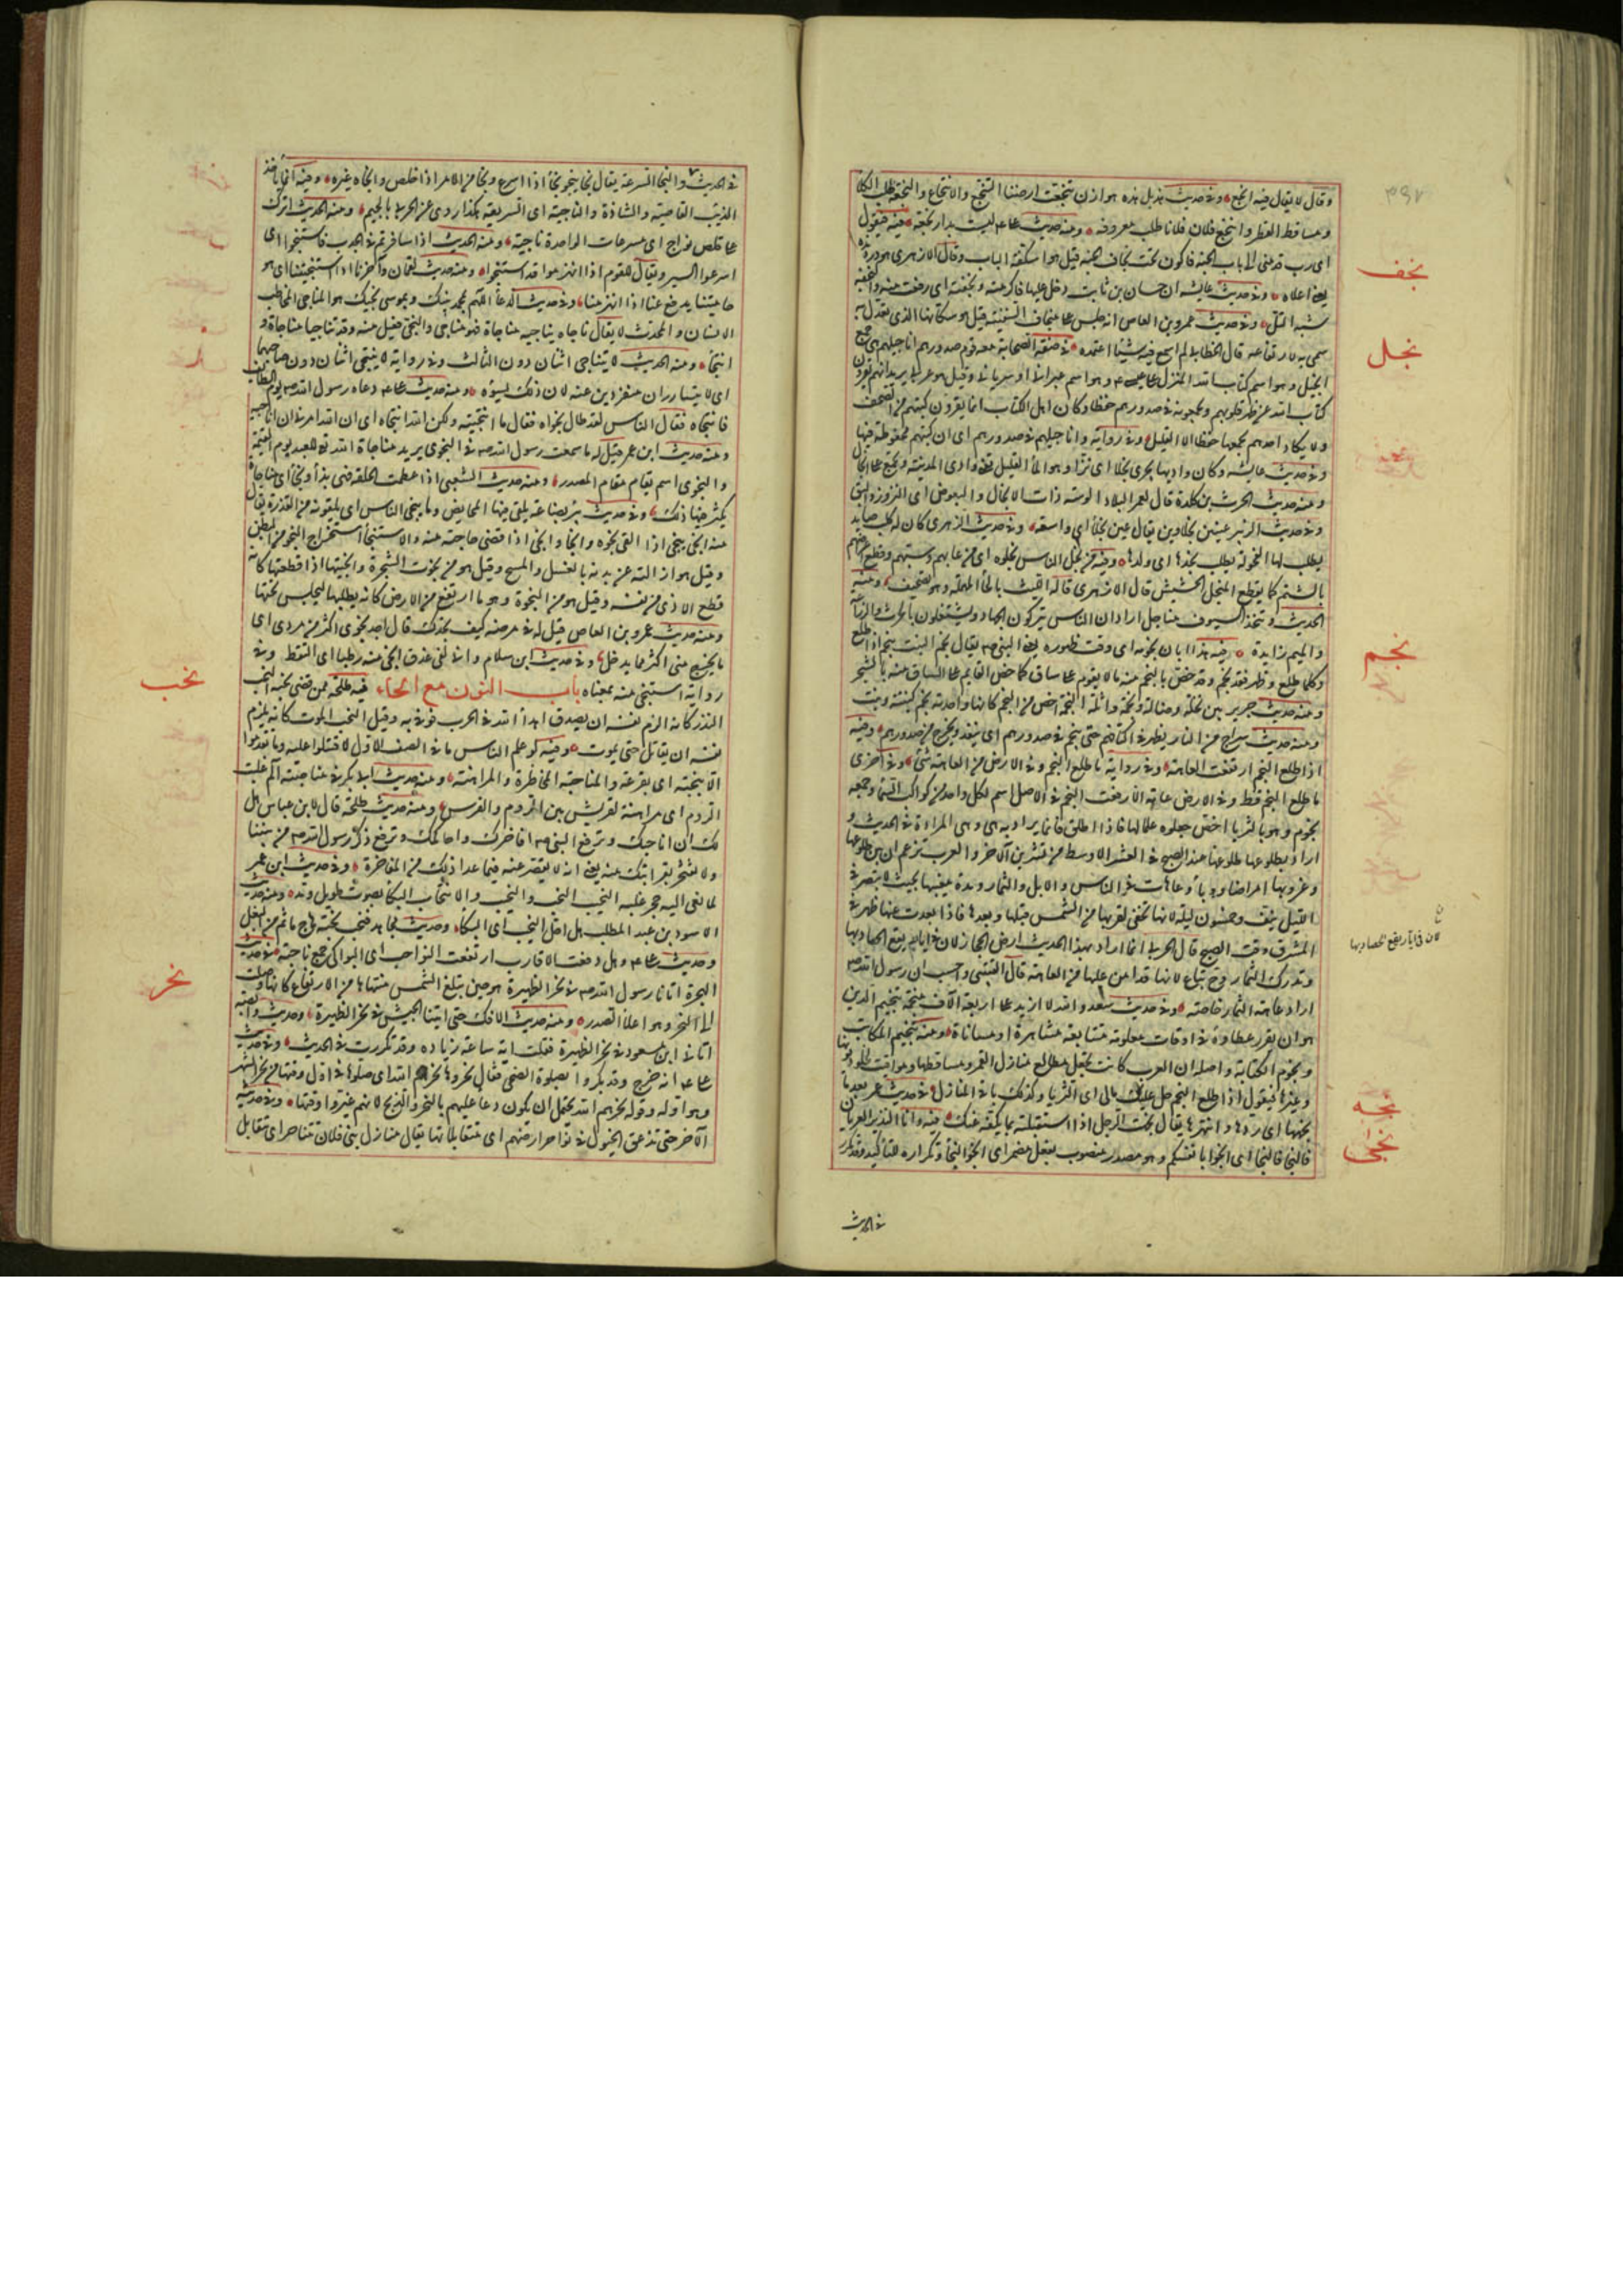 وقال لا يقال فيه انجع وفى حديث بديل هذه هوازن تنجعت ارضنا التنجع والانتجاع والنجعة طلب الكلأ
ومساقط القطر وانتجع فلان فلانا طلب معروفه ومنه حديث على ليست بدار نجعة فيه فيقول
اى رب قدمنى الى باب الجنة فاكون تحت نجاف الجنة قيل هو اسكفة الباب وقال الازهرى هو درونده
يعنى اعلاه وفى حديث عايشه ان حسان بن ثابت دخل عليها فاكرمته ونجفته اى رفعت منه
شبه التل وفى حديث عمرو بن العاص انه جلس على منجاف السفينة قيل هو سكانها الذى تعدل به
سمى به لارتفاعه قال الخطابى لم اسمع فيه شيئا اعتمده فى صفة الصحابة معه قوم صدورهم اناجيلهم هى جمع
انجيل وهو اسم كتاب الله المنزل على عيسى وهو اسم عبرانى او سريانى وقيل هو عربى يريد انهم يقرؤن
كتاب الله عن ظهر قلوبهم ويجمعونه فى صدورهم حفظا وكان اهل الكتاب انما يقرؤن كتبهم من الصحف
ولا يكاد احدهم يجمعها حفظا الا القليل وفى رواية واناجيلهم فى صدورهم اى ان كتبهم محفوظة فيها
وفى حديث عايشه وكان واديها يجرى نجلا اى نزا وهو الماء القليل تعنى وادى المدينة ويجمع على انجال
ومنه حديث الحرث بن كلدة قال لعمر البلاد الوبئة ذات الانجال والبعوض اى النزوز والبق
وفى حديث الزبير عينين نجلاوين يقال عين نجلاء اى واسعة وفى حديث الزهرى كان له كلب صايد
يطلب لها الفحولة يطلب نجلها اى ولدها وفيه من نجل الناس نجلوه اى من عابهم وسبهم وقطع اعراضهم
بالشتم كما يقطع المنجل الحشيش قال الازهرى قاله الليث بالحاء المهملة وهو تصحيف ومنه
الحديث وتتخذ السيوف مناجل اراد ان الناس يتركون الجهاد ويشتغلون بالحرث والزراعة
والميم زايدة فيه هذا ابان نجومه اى وقت ظهوره يعنى النبى يقال نجم النبت ينجم اذا طلع
وكلما طلع وظهر فقد نجم وقد خص بالنجم منه ما لا يقوم على ساق كما خص القايم على الساق منه بالشجر
ومنه حديث جرير بين نخلة وضالة ونجمة واثلة النجمة اخص من النجم كانها واحدته نجم كنبتة ونبت
ومنه حديث سراج من النار يظهر فى اكتافهم حتى ينجم فى صدورهم اى ينفذ ويخرج من صدورهم وفيه
اذا طلع النجم ارتفعت العاهة وفى رواية ما طلع النجم وفى الارض من العاهة شئ وفى اخرى
ما طلع النجم قط وفى الارض عاهة الا رفعت النجم فى الاصل اسم لكل واحد من كواكب السماء وجمعه
نجوم وهو بالثريا اخص جعلوه علما لها فاذا اطلق فانما يراد به هى وهى المرادة فى الحديث و
اراد بطلوعها طلوعها عند الصبح فى العشر الاوسط من تشرين الآخر والعرب تزعم ان بين طلوعها
وغروبها امراضا ووباء وعاهات فى الناس والابل والثمار ومدة مغيبها بحيث لا تبصر فى
الليل نيف وخمسون ليلة لانها تخفى لقربها من الشمس قبلها وبعدها فاذا بعدت عنها ظهرت فى
المشرق وقت الصبح قال الحربى انما اراد بهذا الحديث ارض الحجاز لان فى ايار يقع الحصاد بها
وتدرك الثمار وح تباع لانها قد امن عليها من العاهة قال القتيبى واحسب ان رسول الله
اراد عاهة الثمار خاصة وفى حديث سعد والله لا ازيد على اربعة آلاف منجمة تنجيم الدين
هو ان يقرر عطاؤه فى اوقات معلومة متتابعة مشاهرة او مساناة ومنه تنجيم المكاتب
ونجوم الكتابة واصله ان العرب كانت تجعل مطالع منازل القمر ومساقطها مواقيت لحلول ديونها
وغيرها فيقول اذا طلع النجم حل عليك مالى اى الثريا وكذلك باقى المنازل فى حديث عمر بعد ما
نجهها اى ردها وانتهرها يقال نجهت الرجل اذا استقبلته بما يكفه عنك فيه وانا النذير العريان
فالنجا فالنجا اى انجوا بانفسكم وهو مصدر منصوب بفعل مضمر اى انجوا النجاء وتكراره للتأكيد وقد تكرر
فى الحديث
نجف
نجل
نجم
لان فى ايار يقع الحصاد بها
نجه
نجى
فى الحديث والنجا السرعة يقال نجا ينجو نجاء اذا اسرع ونجا من الامر اذا خلص وانجاه غيره وفيه انما يأخذ
الذيب القاصية والشاذة والناجية اى السريعة هكذا روى عن الحربى بالجيم ومنه الحديث اتوك
على قلص نواج اى مسرعات الواحدة ناجية ومنه الحديث اذا سافرتم فى الجدب فاستنجوا اى
اسرعوا السير ويقال للقوم اذا انهزموا قد استنجوا ومنه حديث لقمان وآخرنا اذا استنجينا اى هو
حاميتنا يدفع عنا اذا انهزمنا وفى حديث الدعاء اللهم بمحمد نبيك وبموسى نجيك هو المناجى المخاطب
الانسان والمحدث له يقال ناجاه يناجيه مناجاة فهو مناجى والنجى فعيل منه وقد تناجيا مناجاة و
انتجاء ومنه الحديث لا يتناجى اثنان دون الثالث وفى رواية لا ينتجى اثنان دون صاحبهما
اى لا يتسارران منفردين عنه لان ذلك يسوءه ومنه حديث على دعاه رسول الله يوم الطائف
فانتجاه فقال الناس لقد طال نجواه فقال ما انتجيته ولكن الله انتجاه اى ان الله امرنى ان اناجيه
ومنه حديث ابن عمر قيل له ما سمعت رسول الله فى النجوى يريد مناجاة الله تعالى للعبد يوم القيمة
والنجوى اسم يقام مقام المصدر ومنه حديث الشعبى اذا عظمت الحلقة فهى بذاء ونجاء اى مناجاة
يكثر فيها ذلك وفى حديث بئر بضاعة يلقى فيها المحايض وما ينجى الناس اى يلقونه من العذرة يقال
منه انجى ينجى اذا القى نجوه ونجا وانجى اذا قضى حاجته منه والاستنجاء استخراج النجو من البطن
وقيل هو ازالته عن بدنه بالغسل والمسح وقيل هو من نجوت الشجرة وانجيتها اذا قطعتها كانه
قطع الاذى من نفسه وقيل هو من النجوة وهو ما ارتفع من الارض كانه يطلبها ليجلس تحتها
ومنه حديث عمرو بن العاص قيل له فى مرضه كيف تجدك قال اجد نجوى اكثر من رزئى اى
ما يخرج منى اكثر مما يدخل وفى حديث ابن سلام وانى لفى عذق انجى منه رطبا اى التقط وفى
رواية استنجى منه بمعناه باب النون مع الحاء فيه طلحة ممن قضى نحبه النحب
النذر كانه الزم نفسه ان يصدق اعداء الله فى الحرب فوفى به وقيل النحب الموت كانه يلزم
نفسه ان يقاتل حتى يموت وفيه لو علم الناس ما فى الصف الاول لاقتتلوا عليه وما تقدموا
الا بنحبة اى بقرعة والمناحبة المخاطرة والمراهنة ومنه حديث ابى بكر فى مناحبة الم غلبت
الروم اى مراهنة لقريش بين الروم والفرس ومنه حديث طلحة قال لابن عباس هل
لك ان اناحبك وترفع النبى اى افاخرك واحاكمك وترفع ذكر رسول الله من بيننا
ولا تفتخر بقرابتك منه يعنى انه لا يقصر عنه فيما عدا ذلك من المفاخرة وفى حديث ابن عمر
لما نعى اليه حجر غلبه النحيب النحب والنحيب والانتحاب البكاء بصوت طويل ومد ومنه حديث
الاسود بن عبد المطلب هل احل النحيب اى البكاء وحديث مجاهد فنحب نحبة هاج ما ثم من البقل
وحديث على وهل دفعت الاقارب او نفعت النواحب اى البواكى جمع ناحبة فى حديث
الهجرة اتانا رسول الله فى نحر الظهيرة هو حين تبلغ الشمس منتهاها من الارتفاع كانها وصلت
الى النحر وهو اعلى الصدر ومنه حديث الافك حتى اتينا الجيش فى نحر الظهيرة وحديث وابصة
اتانى ابن مسعود فى نحر الظهيرة فقلت اية ساعة زيارة وقد تكررت فى الحديث وفى حديث
على انه خرج وقد بكروا بصلوة الضحى فقال نحروها نحرهم الله اى صلوها فى اول وقتها من نحر الشهر
وهو اوله وقوله نحرهم الله يحتمل ان يكون دعاء عليهم بالنحر والذبح لانهم غيروا وقتها وفى حديثه
الآخر حتى تدعق الخيول فى نواحر ارضهم اى متقابلاتها يقال منازل بنى فلان تتناحر اى تتقابل
نحب
نحر